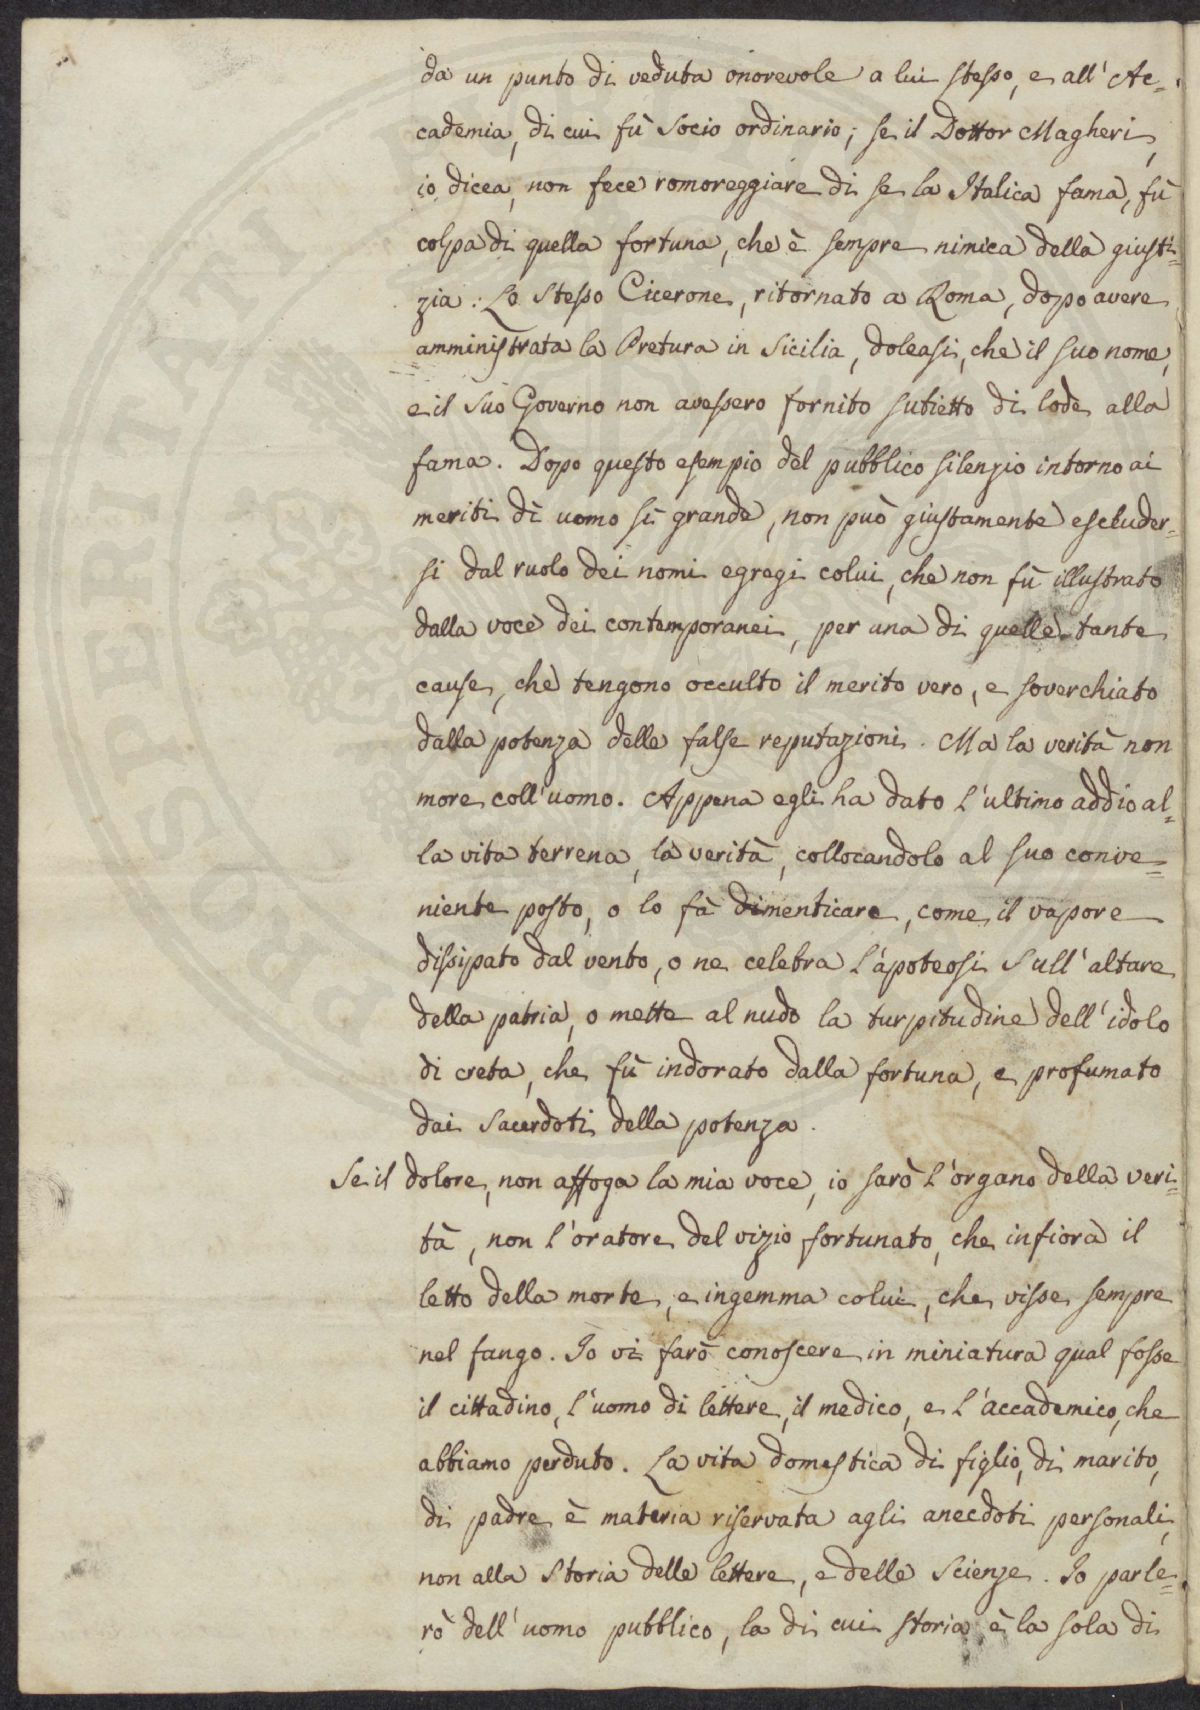 da un punto di veduta onorevole a lui stesso, e all'Ac=
cademia, di cui fù Socio ordinario; se il Dottor Magheri,
io dicea, non fece romoreggiare di se la Italica fama, fù
colpa di quella fortuna, che è sempre nimica della giusti=
zia. Lo stesso Cicerone, ritornato a Roma, dopo avere
amministrata la Pretura in Sicilia, doleasi, che il suo nome,
e il suo Governo non avessero fornito subietto di lode alla
fama. Dopo questo esempio del pubblico silenzio intorno ai
meriti di uomo sì grande, non può giustamente escluder=
si dal ruolo dei nomi egregi colui, che non fù illustrato
dalla voce dei contemporanei, per una di quelle tante
cause, che tengono occulto il merito vero, e soverchiato
dalla potenza delle false reputazioni. Ma la verità non
more coll'uomo. Appena egli ha dato l'ultimo addio al=
la vita terrena, la verità, collocandolo al suo conve=
niente posto, o lo fà dimenticare, come il vapore
dissipato dal vento, o ne celebra l'apoteosi sull'altare
della patria, o mette al nudo la turpitudine dell'idolo
di creta, che fù indorato dalla fortuna, e profumato
dai Sacerdoti della potenza.
Se il dolore, non affoga la mia voce, io sarò l'organo della veri=
tà, non l'oratore del vizio fortunato, che infiora il
letto della morte, e ingemma colui, che visse sempre
nel fango. Io vi farò conoscere in miniatura qual fosse
il cittadino, l'uomo di lettere, il medico, e l'accademico, che
abbiamo perduto. La vita domestica di figlio, di marito,
di padre è materia riservata agli anecdoti personali,
non alla Storia delle lettere, e delle Scienze. Io parle=
rò dell'uomo pubblico, la di cui storia è la sola di